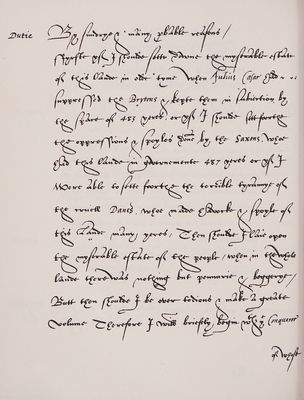 Dutie
By sundrye & many p̱bable reasons /
Fyrste yf I shoulde sette downe the myserable estate
of this lande in olde tyme when Julius Cæsar had
suppressed the Brytons & kepte them in subiection by
the space of 483 yeres or yf I shoulde sett forthe
the oppressions & spoyles done by the Saxons, whoe
had this lande in governemente 487 yeres or yf I
were able to sette foorthe the terrible tyrannye of
the cruell Danes, whoe made havocke & spoyle of
this lande many yeres, Then shoulde I laie open
the myserable estate of the people, when in the whole
lande there was nothing but penurie & beggerye,
Butt then shoulde I be over tedious & make a greate
volume Therefore I will briefly begin wth ye Conqueror
of whose